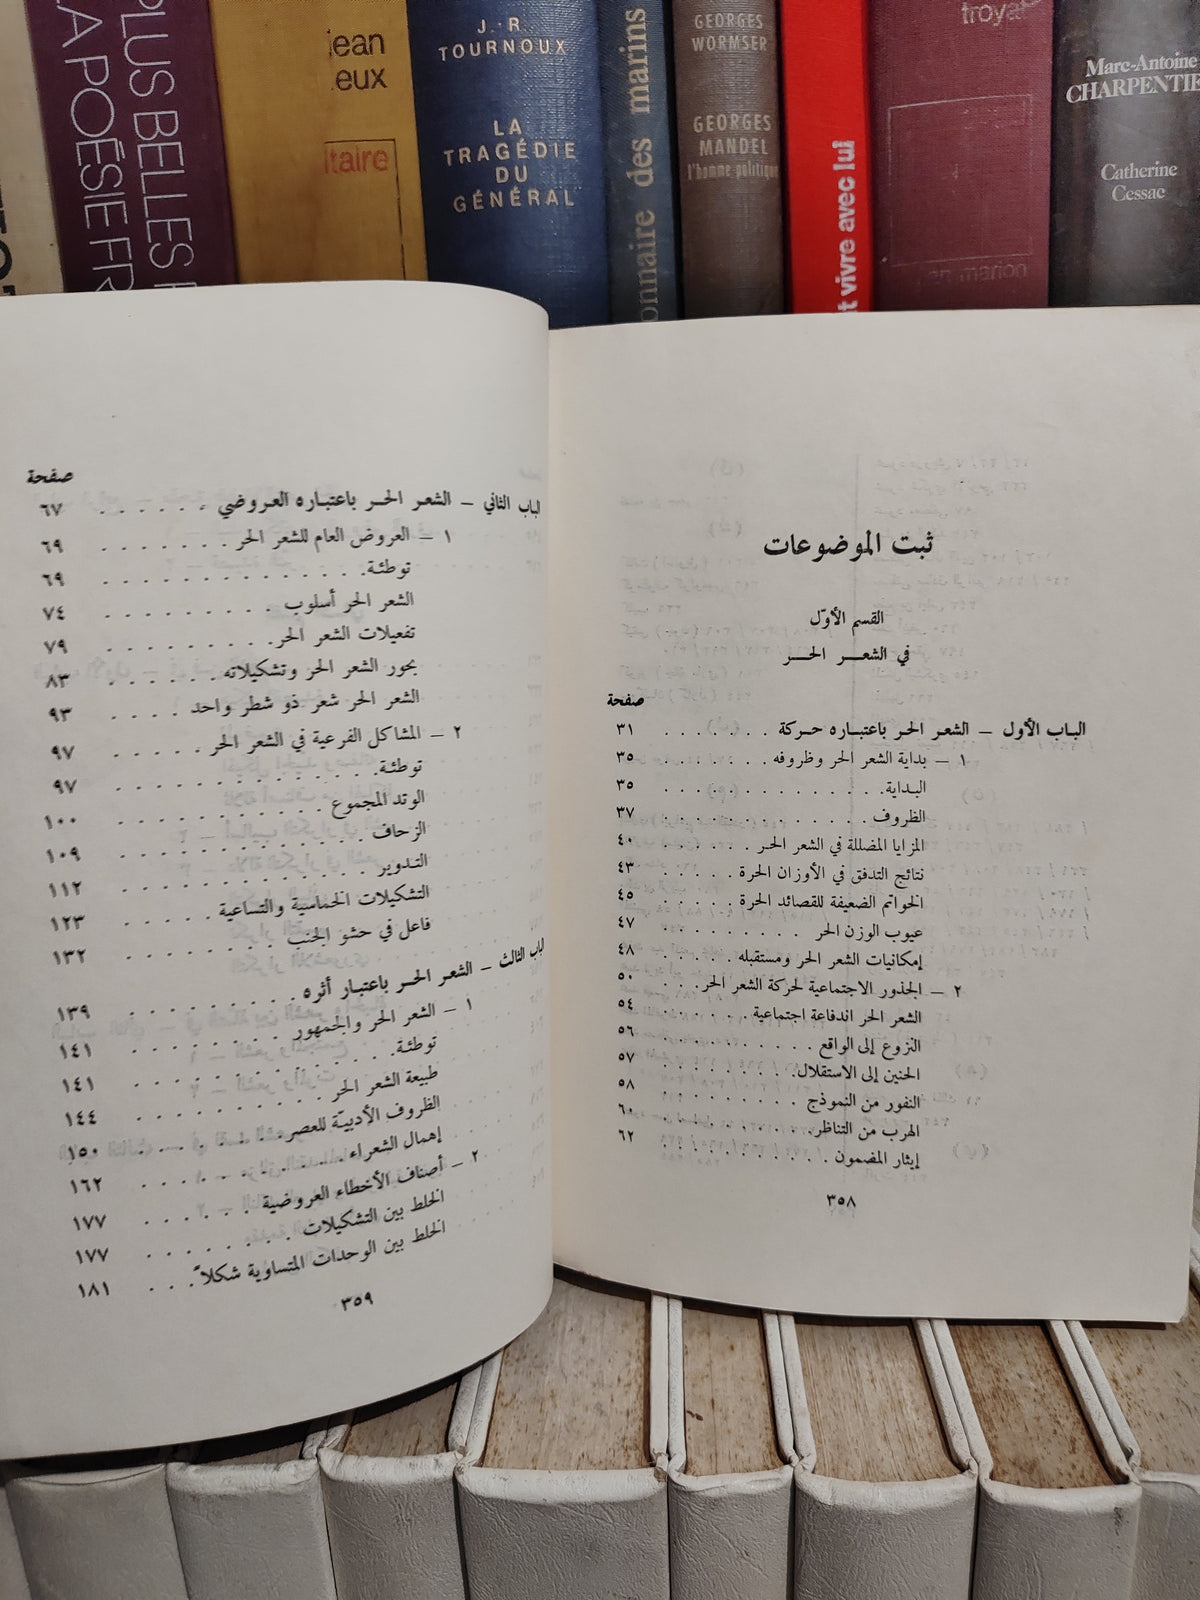 PLUS BELLES
LA POÉSIE FR
jean
eux
taire
J.-R.
TOURNOUX
LA
TRAGÉDIE
DU
GÉNÉRAL
onnaire des marins
GEORGES
WORMSER
GEORGES
MANDEL
l'homme politique
t vivre avec lui
troyat
marion
Marc-Antoine
CHARPENTIE
Catherine
Cessac
ثبت الموضوعات
القسم الأوّل
في الشعــر الحــر
صفحة
البـاب الأول – الشعـر الحـر باعتبـاره حـركة . . . . . . ٣١
١ – بداية الشعر الحر وظروفه . . . . . . ٣٥
البـداية . . . . . . . . . . ٣٥
الظروف . . . . . . . . . . ٣٧
المزايا المضللة في الشعر الحـر . . . . . . ٤٠
نتائج التدفق في الأوزان الحرة . . . . . . ٤٣
الخواتم الضعيفة للقصائد الحرة . . . . . . ٤٥
عيوب الوزن الحر . . . . . . . . ٤٧
إمكانيات الشعر الحر ومستقبله . . . . . . ٤٨
٢ – الجذور الاجتماعية لحركة الشعر الحر . . . . ٥٠
الشعر الحر اندفاعة اجتماعية . . . . . . ٥٤
النزوع إلى الواقع . . . . . . . . ٥٦
الحنين إلى الاستقلال . . . . . . . . ٥٧
النفور من النموذج . . . . . . . . ٥٨
الهرب من التناظر . . . . . . . . ٦٠
إيثار المضمون . . . . . . . . . ٦٢
٣٥٨
صفحة
الباب الثاني – الشعـر الحـر باعتبـاره العـروضي . . . . . . ٦٧
١ – العروض العام للشعر الحر . . . . . . . ٦٩
توطئـة . . . . . . . . . . . ٦٩
الشعر الحر أسلوب . . . . . . . . . ٧٤
تفعيلات الشعر الحر . . . . . . . . . ٧٩
بحور الشعر الحر وتشكيلاته . . . . . . ٨٣
الشعر الحر شعر ذو شطر واحد . . . . ٩٣
٢ – المشاكل الفرعية في الشعر الحر . . . . . ٩٧
توطئـة . . . . . . . . . . . ٩٧
الوتد المجموع . . . . . . . . . . ١٠٠
الزحاف . . . . . . . . . . . ١٠٩
التـدوير . . . . . . . . . . . ١١٢
التشكيلات الخماسية والتساعية . . . . . ١٢٣
فاعل في حشو الخبب . . . . . . . ١٣٢
الباب الثالث – الشعـر الحـر باعتبـار أثره . . . . . . . . ١٣٩
١ – الشعر الحر والجمهور . . . . . . . ١٤١
توطئـة . . . . . . . . . . . ١٤١
طبيعة الشعر الحر . . . . . . . . . ١٤٤
الظروف الأدبيّة للعصر . . . . . . . ١٥٠
إهمال الشعراء . . . . . . . . . ١٦٢
٢ – أصناف الأخطاء العروضية . . . . . . ١٧٧
الخلط بين التشكيلات . . . . . . . ١٧٧
الخلط بين الوحدات المتساوية شكلاً . . . ١٨١
٣٥٩